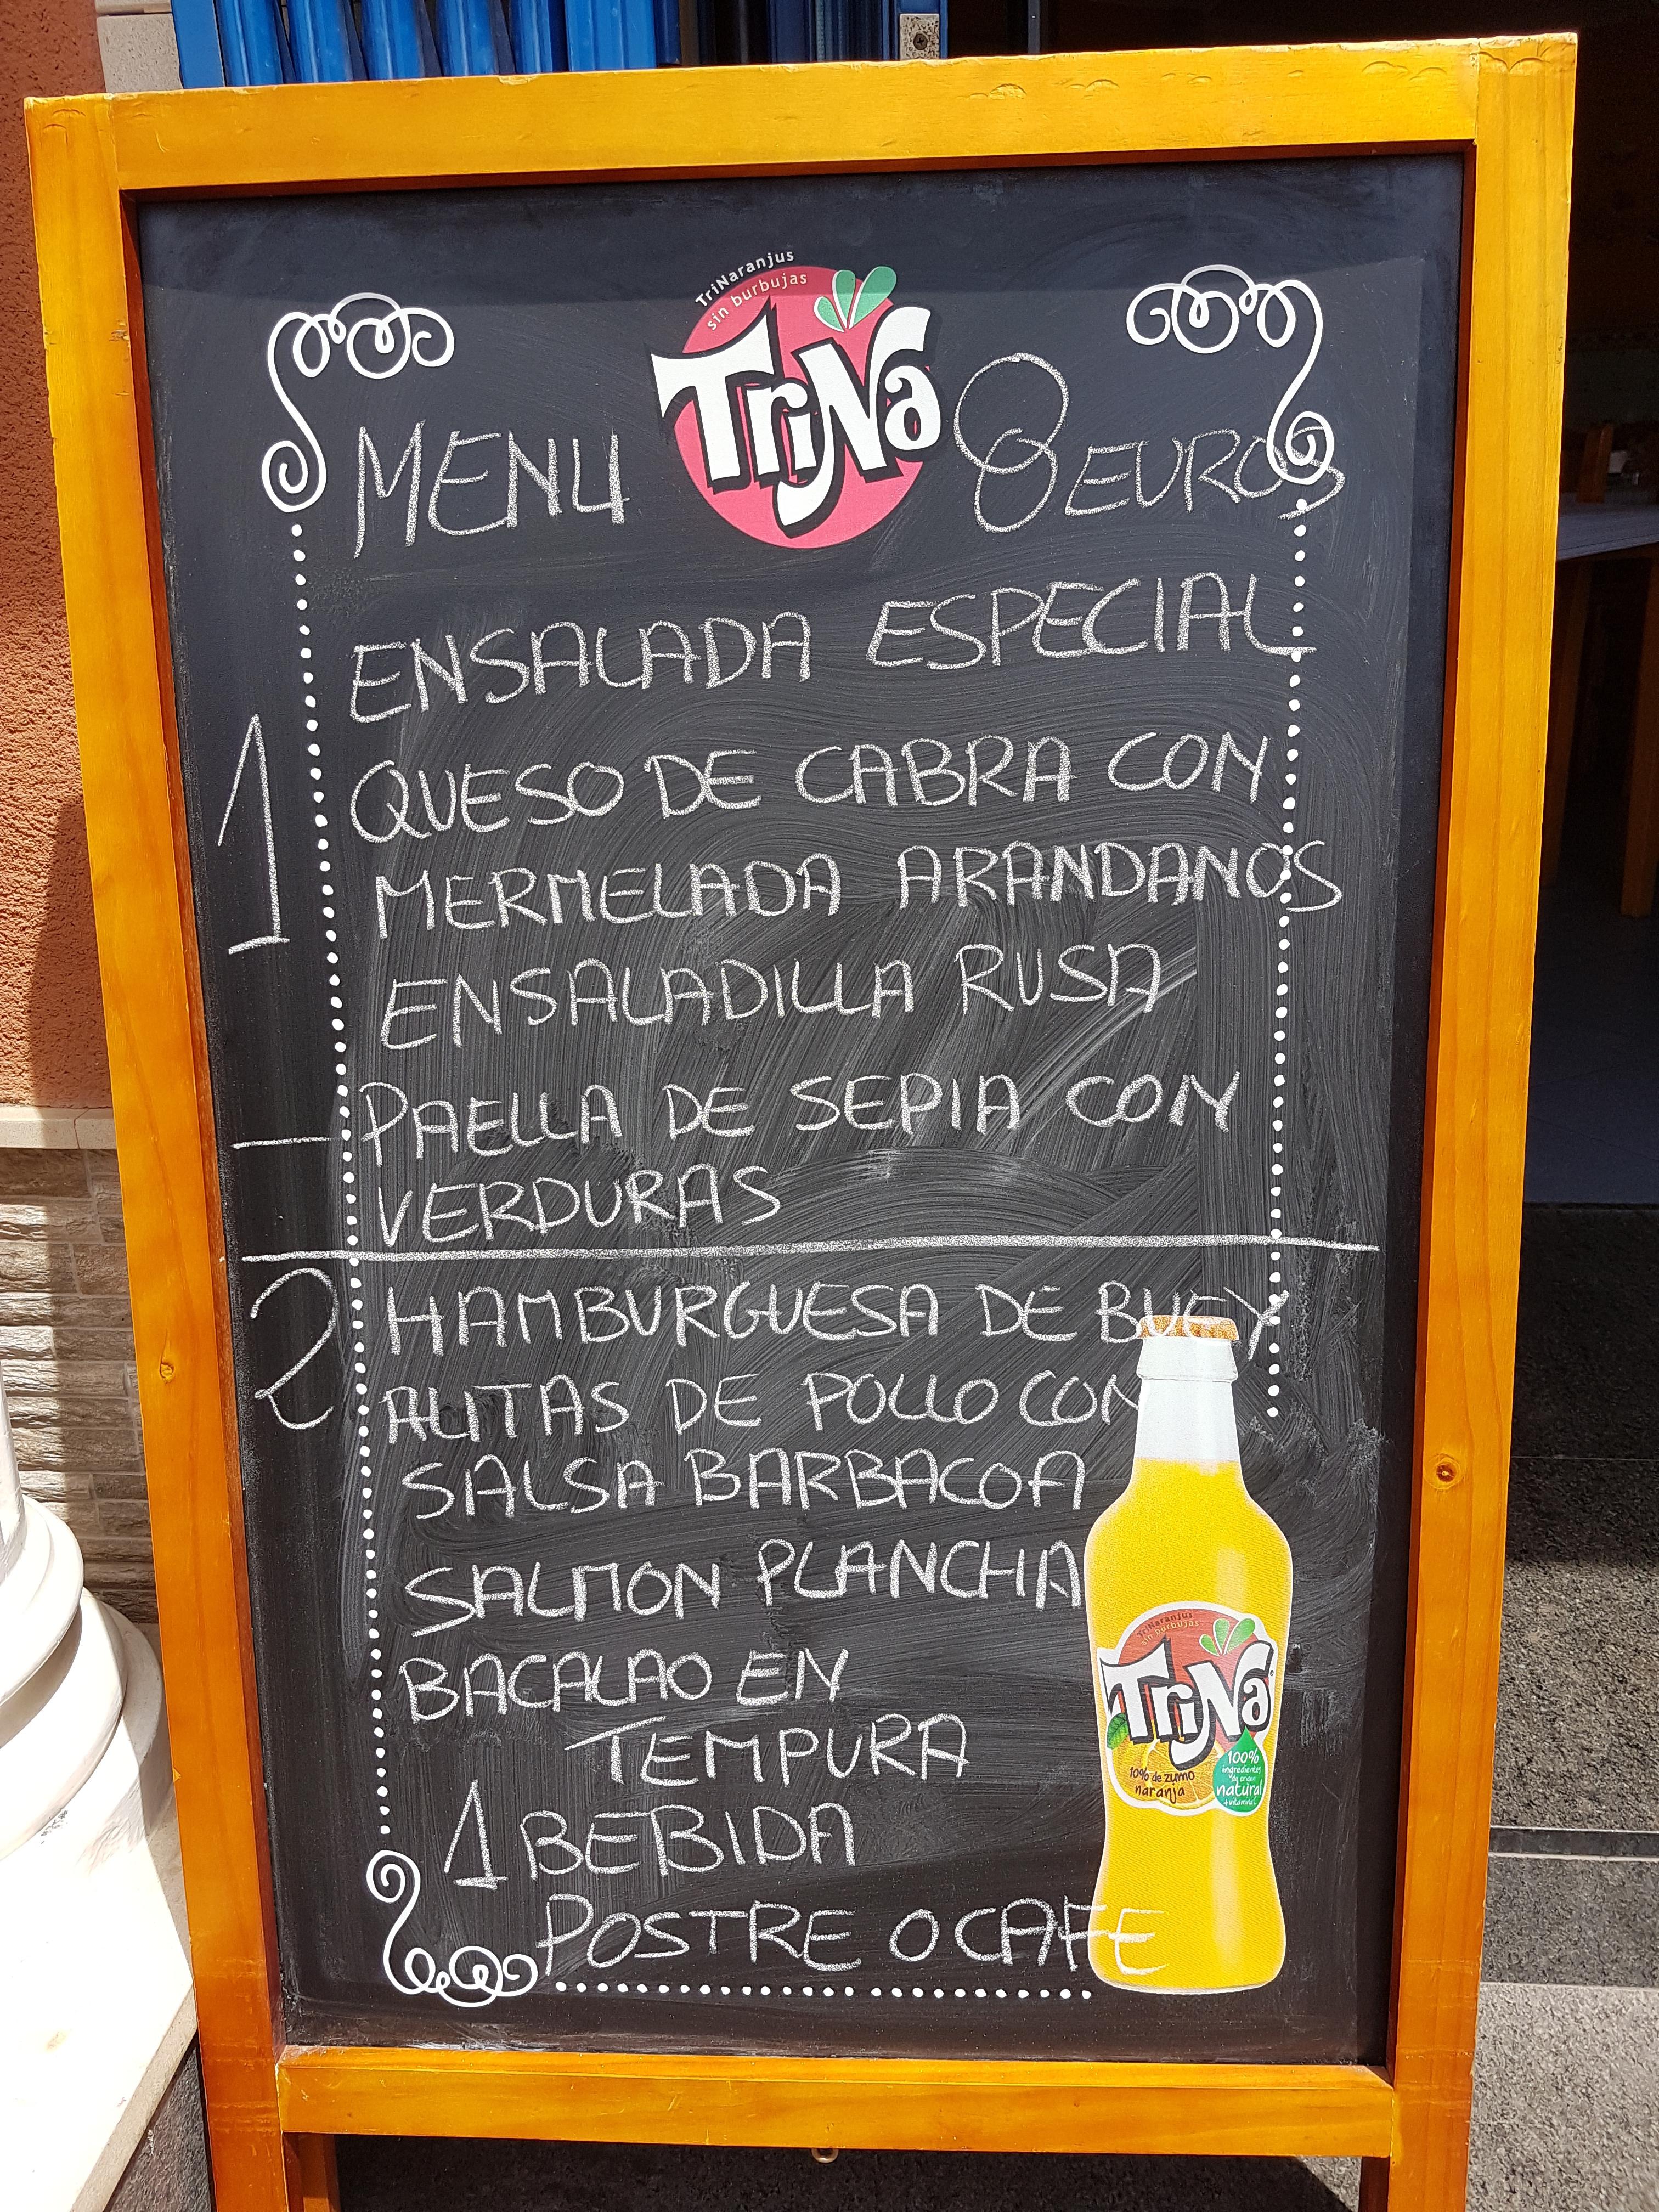 TriNaranjus
sin burbujas
TriNa
MENU 8 EUROS
ENSALADA ESPECIAL
1 QUESO DE CABRA CON
MERMELADA ARANDANOS
ENSALADILLA RUSA
— PAELLA DE SEPIA CON
VERDURAS
2 HAMBURGUESA DE BUEY
ALITAS DE POLLO CON
SALSA BARBACOA
SALMON PLANCHA
BACALAO EN
TEMPURA
1 BEBIDA
POSTRE O CAFE
TriNaranjus
sin burbujas
TriNa
10% de zumo
naranja
100%
ingredientes
de origen
natural
+ vitamina C